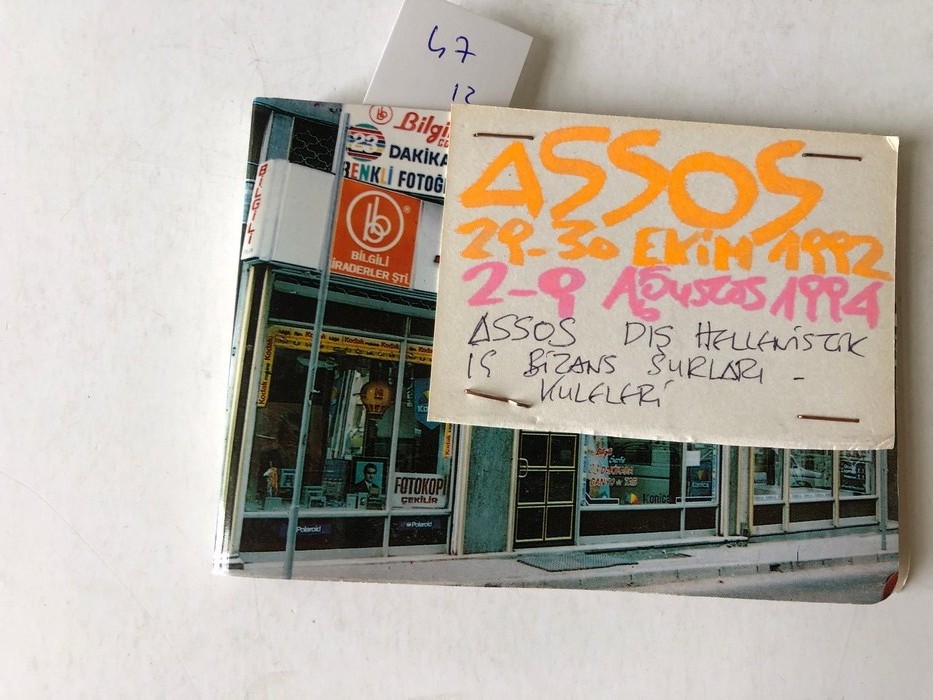 47
12
Bilgi
23 DAKİKA
RENKLİ FOTOĞ
BİLGİLİ
b
BİLGİLİ
İRADERLER ŞTİ.
ASSOS
29-30 EKİM 1992
2-9 AĞUSTOS 1994
ASSOS DIŞ HELLENİSTİK
İÇ BİZANS SURLARI -
KULELERİ
Kodak
Kodak
FOTOKOPİ
ÇEKİLİR
Polaroid
Polaroid
Konica
Konica